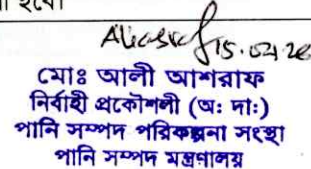 হবে।
Aliasraf 15.04.26
মোঃ আলী আশরাফ
নির্বাহী প্রকৌশলী (অঃ দাঃ)
পানি সম্পদ পরিকল্পনা সংস্থা
পানি সম্পদ মন্ত্রণালয়